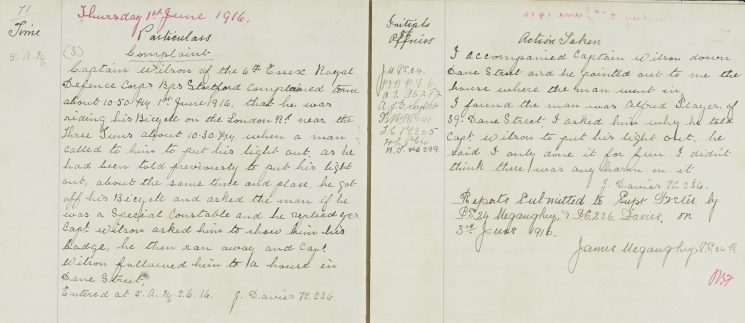 71
Thursday 1st June 1916.
Time
Particulars
5. A.M.
(3) Complaint
Captain Wilson of the 6th Essex Royal
Defence Corps Bps Stortford complained to me
about 10.50 P.M. 1st June 1916, that he was
riding his Bicycle on the London Rd. near the
Three Tuns about 10.30 P.M. when a man
called to him to put his light out, as he
had been told previously to put his light
out, about the same time and place, he got
off his Bicycle and asked the man if he
was a Special Constable and he replied yes.
Capt Wilson asked him to show him his
badge, he then ran away and Capt.
Wilson followed him to a house in
Dane Street,
Entered at 5. A.M. 2.6.16. J. Davies PC 236.
Initials
Officers
Action Taken
I accompanied Captain Wilson down
Dane Street and he pointed out to me the
house where the man went in
I found the man was Alfred Player of
39. Dane Street I asked him why he told
Capt Wilson to put his light out. he
said I only done it for fun I didn't
think there was any harm in it
J. Davies PC 236.
Reports Submitted to Supt Foster by
P.C. 24 Megaughey, & P.C. 236 Davies, on
3rd June 1916.
James Megaughey P.C. 24